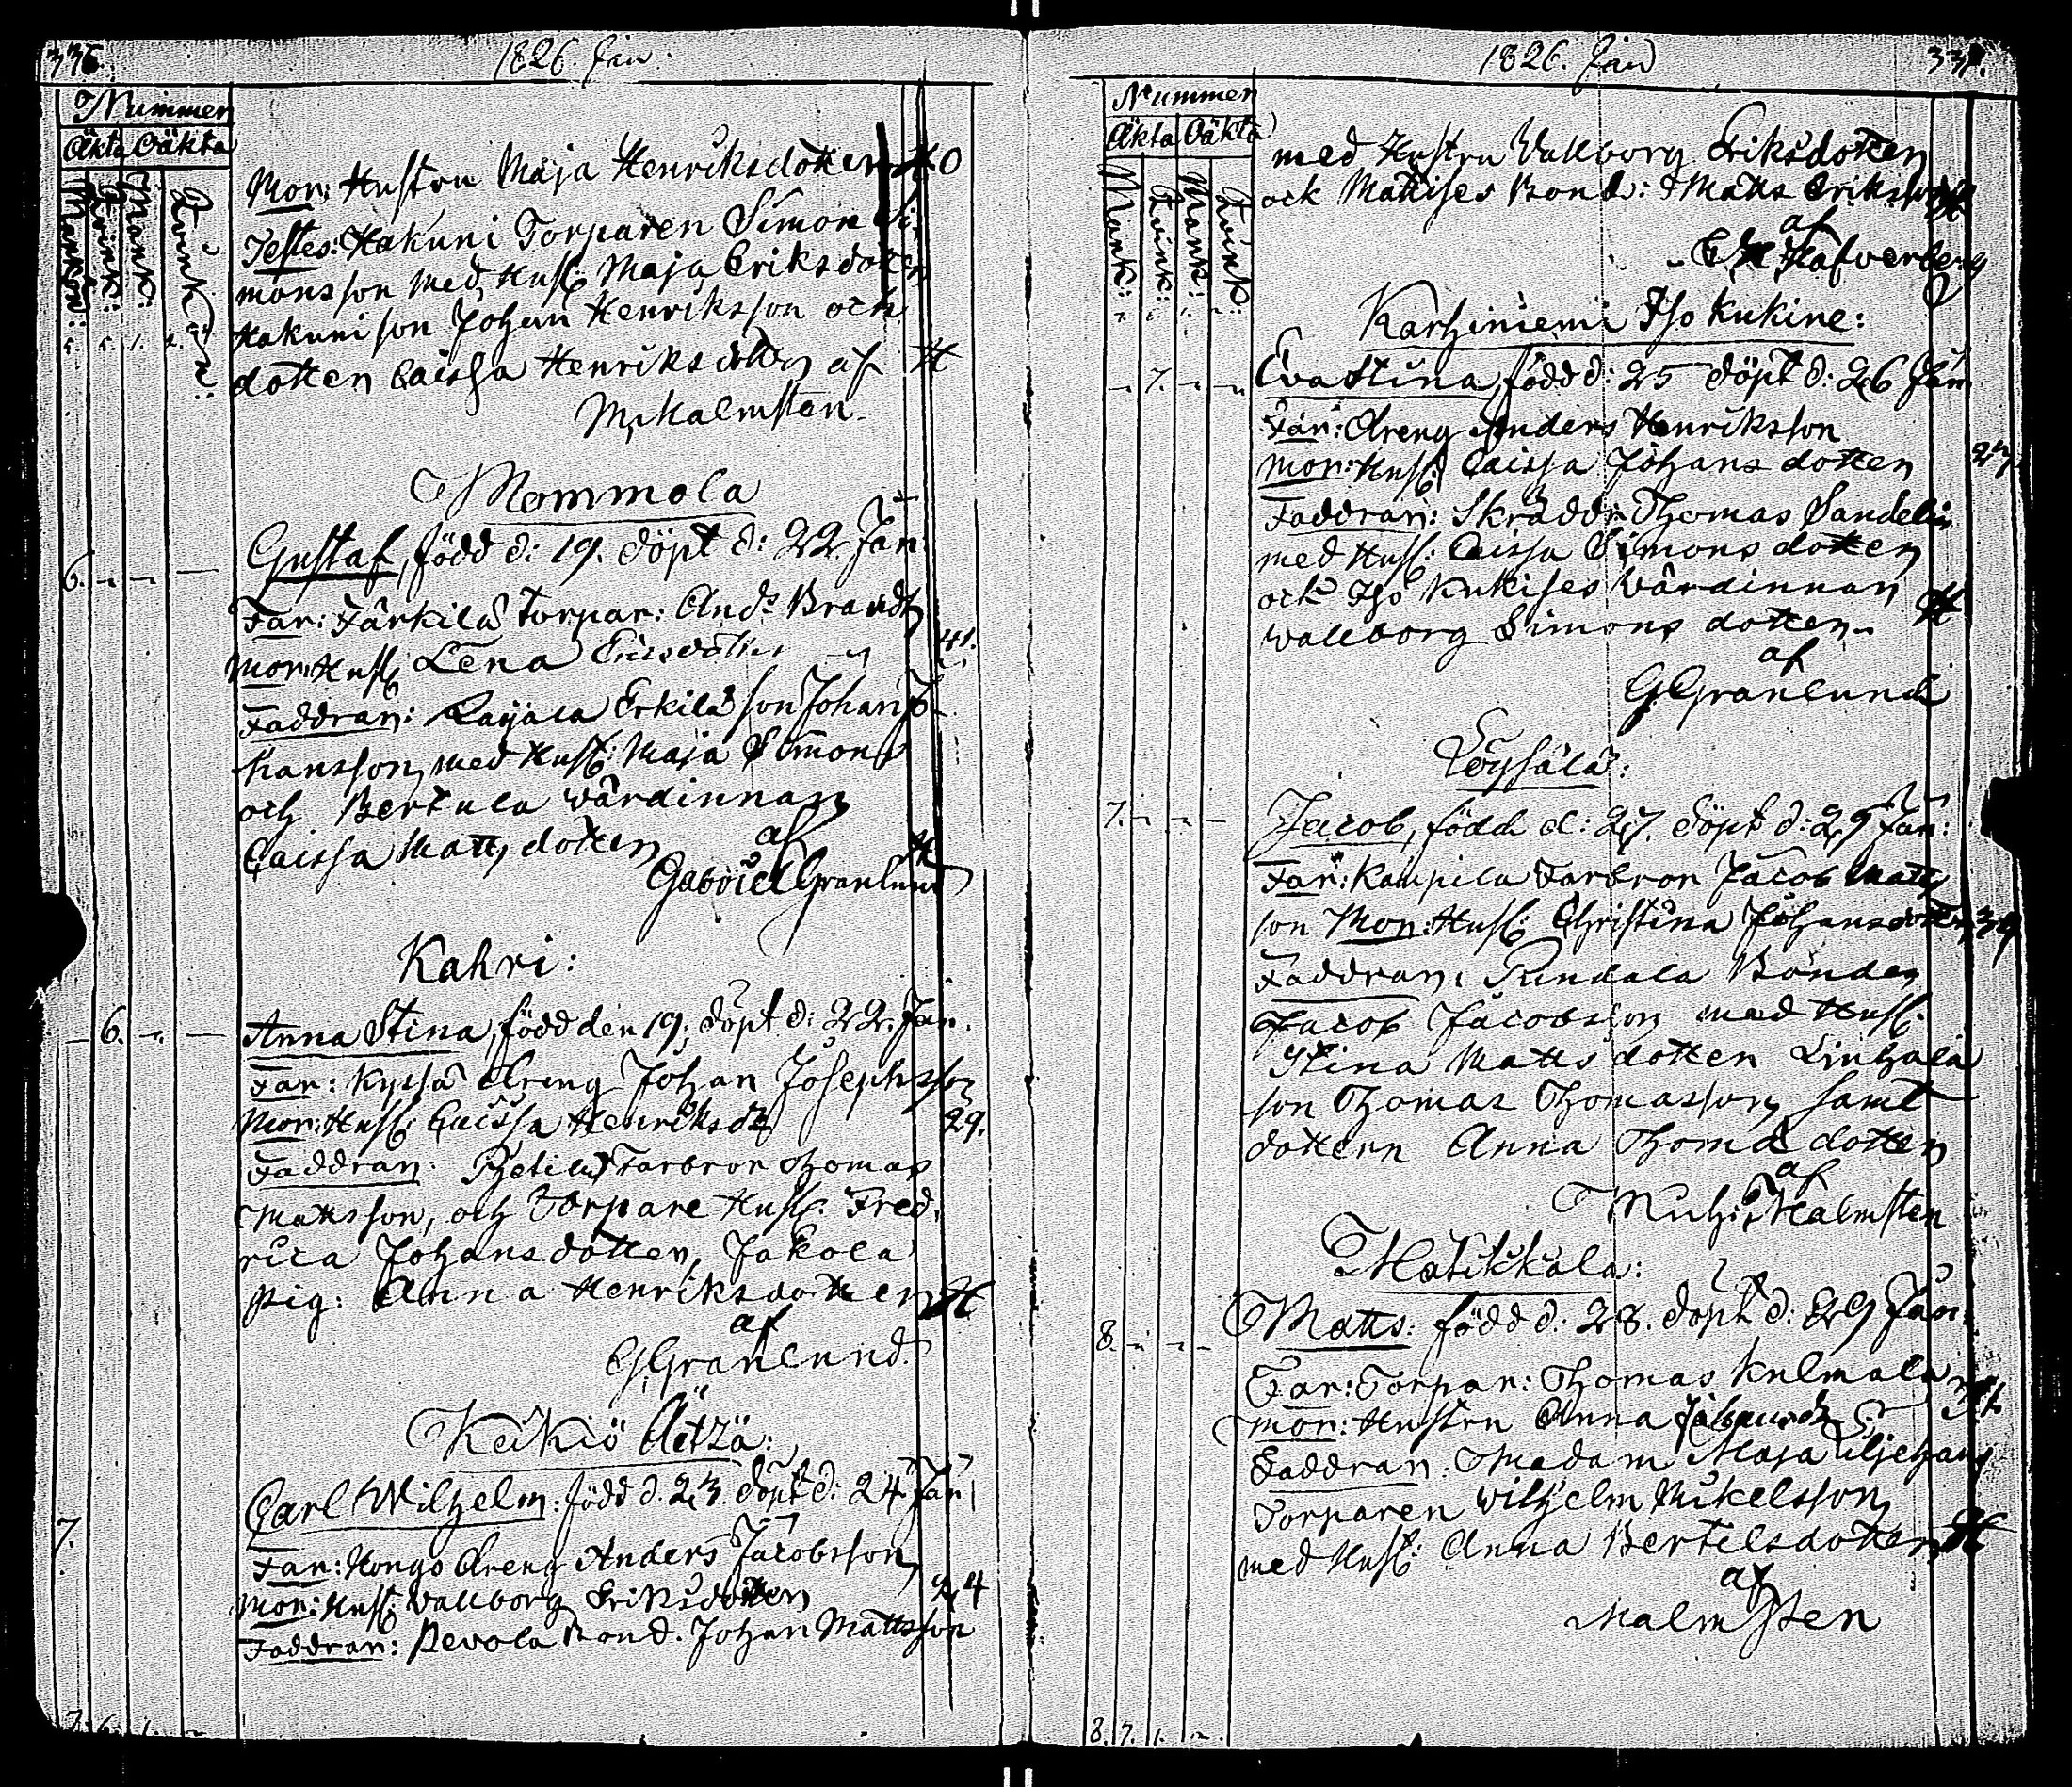 336.
1826. Jan.
Nummer
Äkta Oäkta
Mankön: Qvink: Mank: Qvinkön:
5. 5. 1. 2.
Mor: Hustru Maja Henriksdotter 40
Testes: Hakuni Torparen Simon Si-
monsson med Hust: Maja Eriksdotter
Hakuni son Johan Henriksson och
dotter Caissa Henriksdotter af H
M. Malmsten
Mommola
6. Gustaf, född d: 19. döpt d: 22 Jan
Far: Färkilä Torpar: And: Brandt
Mor: Hust: Lena Ericsdotter 41.
Faddrar: Erkilä son Johan Jo-
hansson, med Hust: Maja Simons
och Bertula Värdinnan
Caissa Matts dotter af H
Gabriel Granlund
Kahri:
6. Anna Stina, född den 19, döpt d: 22. Jan.
Far: Kyssä dreng Johan Josephsson
Mor: Hust: Caissa Henriksdr 29.
Faddrar: Farbror Thomas
Mattsson, och Torpare Hust: Fred-
rica Johansdotter, Jakola
pig: Anna Henriksdotter H
af
G. Granlund.
Keikiö Äetzä:
7. Carl Wilhelm: född d. 23. döpt d: 24 Jan
Far: Hongo dreng Anders Jacobsson
Mor: Hust: Vallborg Eriksdotter 24
Faddrar: Pevola Bond. Johan Mattsson
7. 6. 1. 2
1826. Jan
337.
Nummer
Äkta Oäkta
Mank: Qvink: Mank: Qvink:
med Hustru Vallborg Eriksdotter
och Mattises Bond: Matts Eriksson H
af
Hafverberg
Karhiniemi Iso Kukine:
7. Eva Stina, född d: 25 döpt d: 26 Jan
Far: dreng Anders Henriksson
Mor: Hust: Caissa Johans dotter 27
Faddrar: Skrädd: Thomas Sandelin
med Hust: Caissa Simons dotter
och Iso Kukises Värdinnan
Vallborg Simons dotter H
af
G. Granlund
Löysälä:
7. Jacob, född d: 27. döpt d: 29 Jan:
Far: Kaupila Farbror Jacob Matts
son Mor: Hust: Christina Johansdotter 39
Faddrar: Bonden
Jacob Jacobsson med Hust:
Stina Matts dotter Linhala
son Thomas Thomasson samt
dottern Anna Thomæ dotter
af
Mich: Malmsten
Matikkala:
8. Matts: född d: 28. döpt d: 29 Jan:
Far: Torpar: Thomas Kulmala
Mor: Hustru Anna
Faddrar: Madam Maja Liljeham
Torparen Wilhelm Mikelsson
med Hust: Anna Bertelsdotter H
af
Malmsten
8. 7. 1. 2.